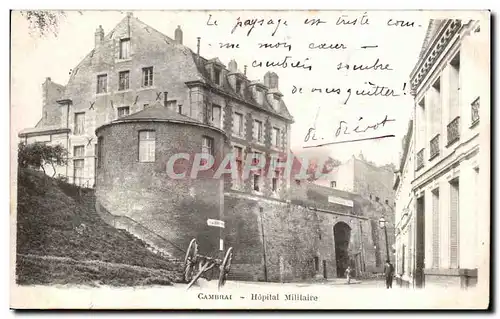 Le paysage est triste com-
me mon cœur —
combien sombre
de vous quitter!
CPARAMA
CAMBRAI - Hôpital Militaire